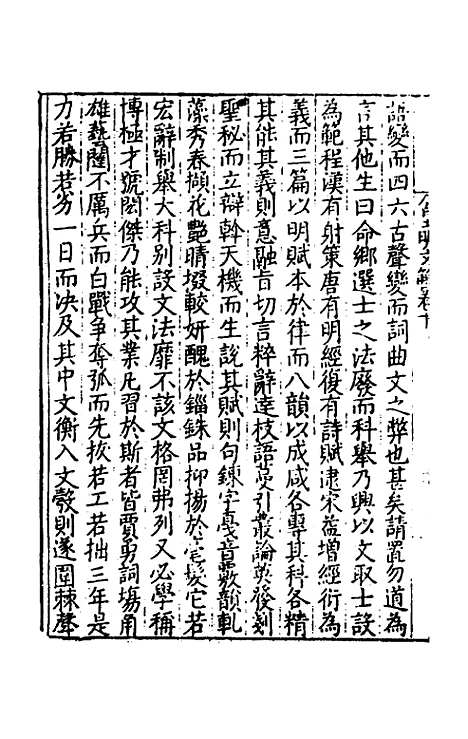 語變而四六古聲變而詞曲文之弊也甚矣請置勿道為
言其他生曰命鄉選士之法廢而科舉乃興以文取士設
為範程漢有射策唐有明經復有詩賦逮宋益增經衍為
義而三篇以明賦本於律而八韻以成咸各專其科各精
其能其義則意融旨切言粹辭達枝語蔓引叢論英發刻
聖秘而立辯斡天機而生說其賦則句鍊字音敷韻軋
藻秀春擷花艷晴掇較妍醜於錙銖品抑揚於毫髮它若
宏辭制舉大科別設文法靡不該文格罔弗列又必學稱
博極才號閎傑乃能攻其業凡習於斯者皆賈勇詞場角
雄藝闈不厲兵而白戰爭奪弧而先挍若工若拙三年是
力若勝若劣一日而決及其中文衡入文彀則遂圍棘聲